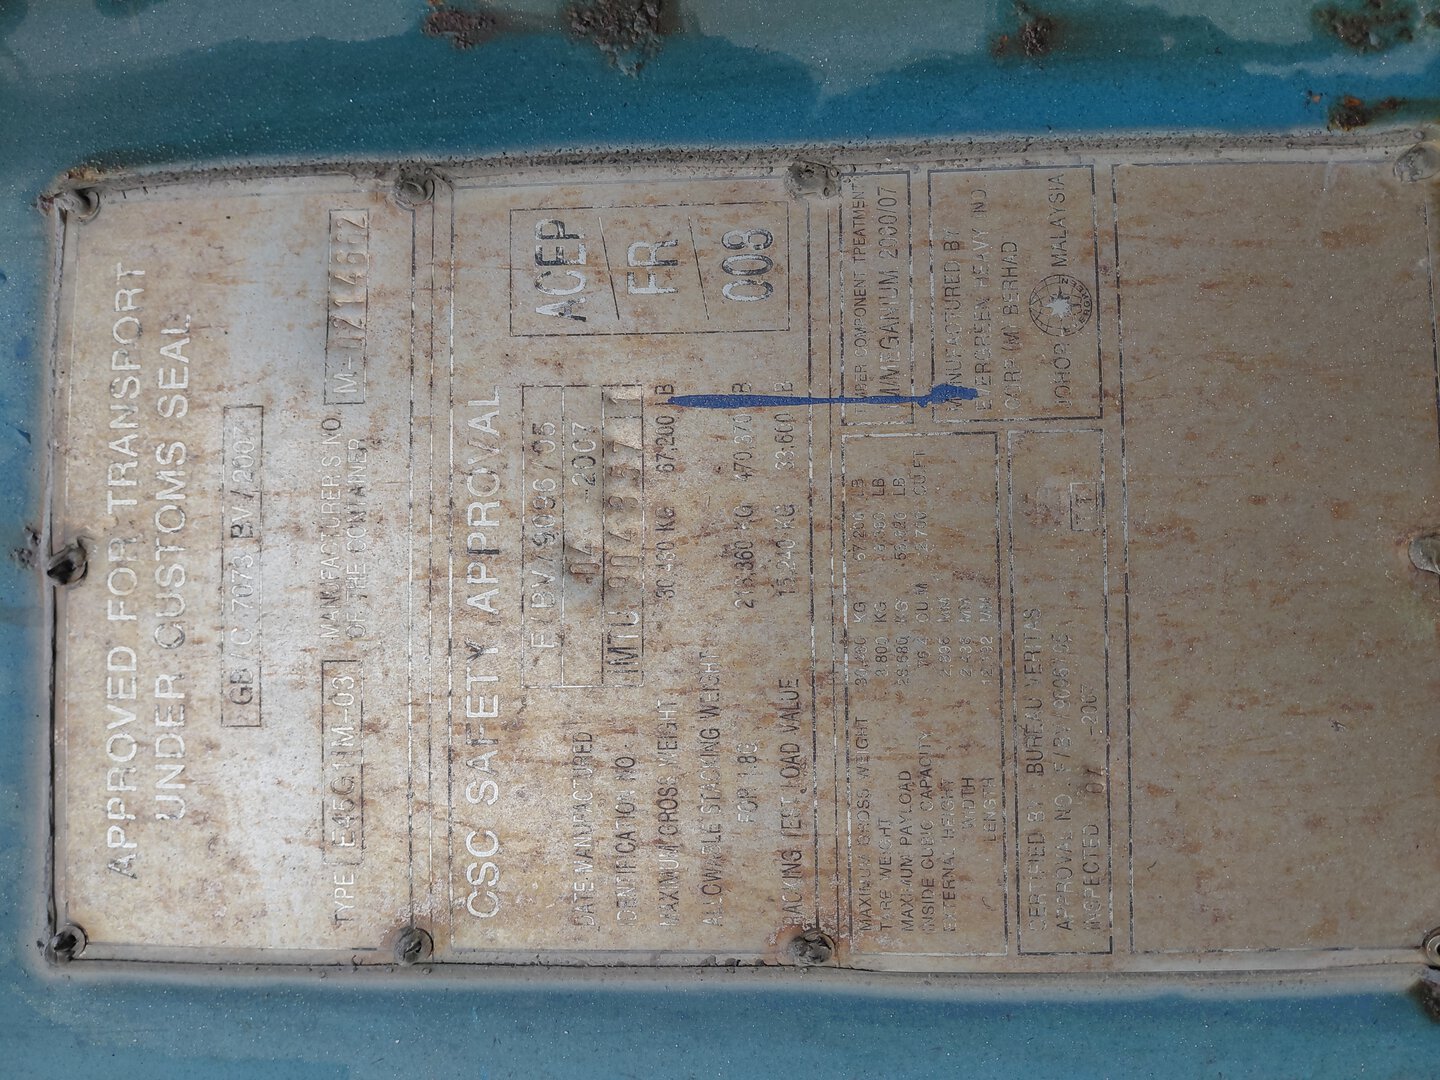 APPROVED FOR TRANSPORT
UNDER CUSTOMS SEAL
GB/C 7073 BV/2007
TYPE E45G1M-03 MANUFACTURER'S NO. OF THE CONTAINER
CSC SAFETY APPROVAL
F/BV/9096/05
DATE MANUFACTURED 04 -2007
IDENTIFICATION NO.
MAXIMUM GROSS WEIGHT 30,480 KG 67,200 LB
ALLOWABLE STACKING WEIGHT
FOR 1.8G 213,360 KG 470,370 LB
RACKING TEST LOAD VALUE 15,240 KG 33,600 LB
ACEP
FR
008
MAXIMUM GROSS WEIGHT 30,480 KG 67,200 LB
TARE WEIGHT 3,800 KG LB
MAXIMUM PAYLOAD 26,680 KG LB
INSIDE CUBIC CAPACITY CU.M CU.FT
EXTERNAL HEIGHT 2,896 MM
WIDTH 2,438 MM
LENGTH 12,192 MM
TIMBER COMPONENT TREATMENT
IM/MEGANIUM 2000/07
MANUFACTURED BY
EVERGREEN HEAVY IND
CORP (M) BERHAD
JOHOR MALAYSIA
CERTIFIED BY BUREAU VERITAS
APPROVAL NO. F/BV/9096/05
INSPECTED -2007